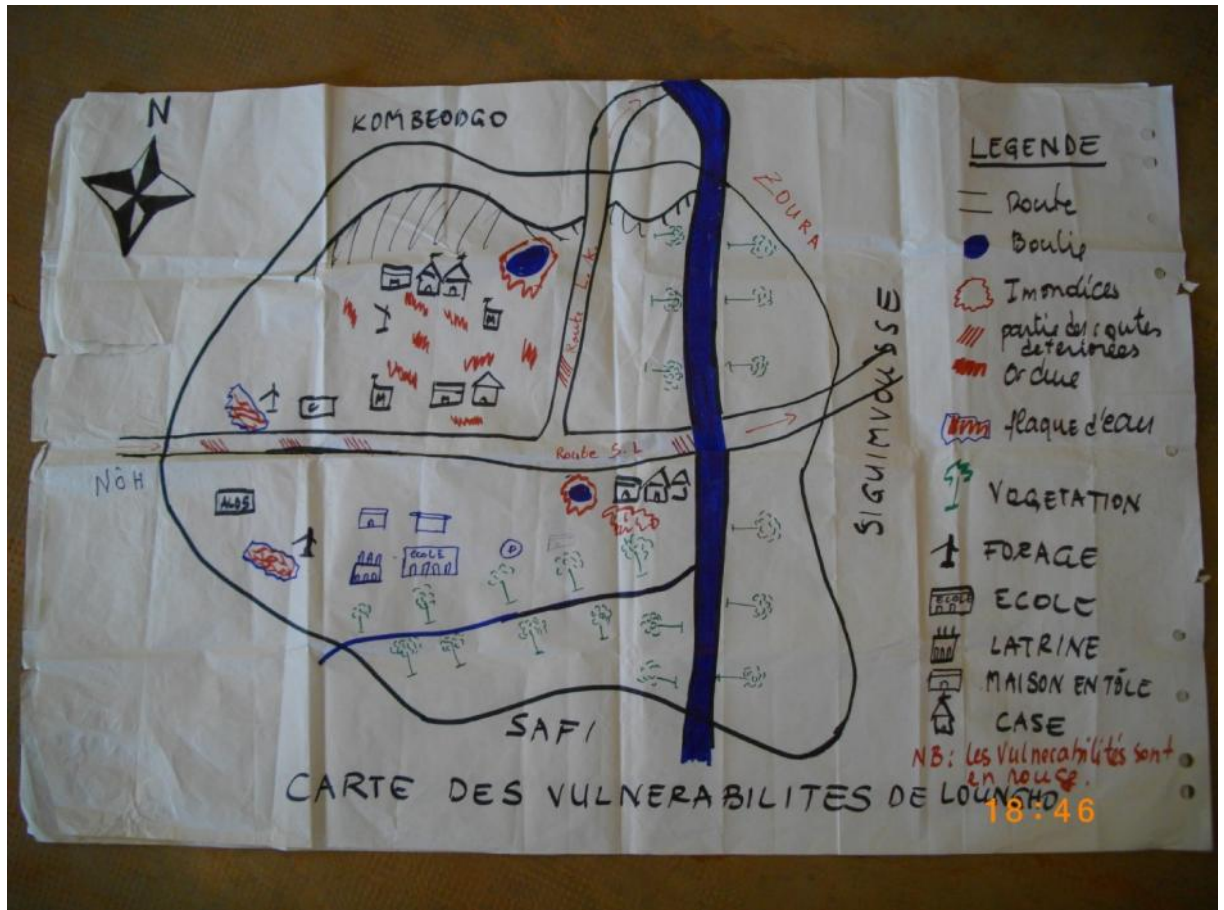 N
KOMBEODGO
ZOURA
SIGUIMVOUSSE
NÔH
SAFI
Route L.K.
Route S.L
M
M
M
ALOS
ECOLE
D
LEGENDE
Route
Boulie
Imondices
partie des routes
deteriorées
Ordure
flaque d'eau
VOGETATION
FORAGE
ECOLE
ECOLE
LATRINE
MAISON EN TÔLE
CASE
NB: les Vulnerabilités sont
en rouge.
CARTE DES VULNERABILITES DE LOUNGHO
18:46